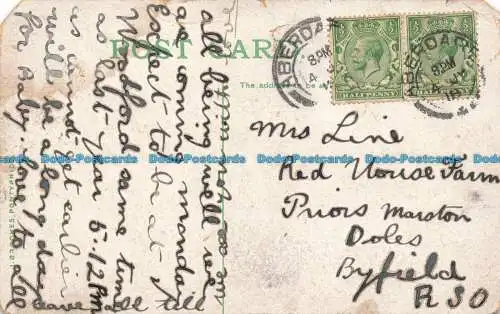 POST CARD
The address to be
ABERDARE
8 PM
4 JY
18
ABERDARE
8 PM
4 JY
18
HALFPENNY
HALFPENNY
all being well we
are coming monday
Expect to be at
Woodford same time
as last year 5-12 Pm
as cannot get earlier
will be a long day
for Baby love to all
leave all till
Mrs Line
Red House Farm
Priors Marston
Doles
Byfield
R S O
Dodo-Postcards Dodo-Postcards Dodo-Postcards Dodo-Postcards Dodo-Postcards